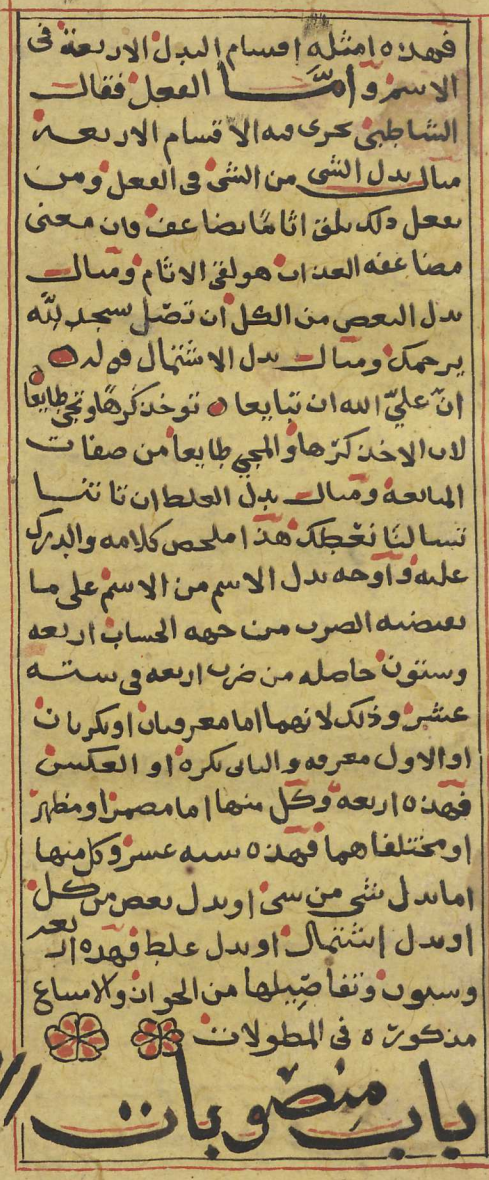 فهذه امثله اقسام البدل الاربعة فى
الاسم وامَّا الفعل فقال
الشاطبى يجرى فيه الاقسام الاربعة
مثال بدل الشى من الشى فى الفعل ومن
يفعل ذلك يلق اثامًا يضاعف فان معنى
مضاعفه العذاب هو لقى الاثام ومثال
بدل البعض من الكل ان تصلّ تسجد للّه
يرحمك ومثال بدل الاشتمال قوله
انّ عليّ الله ان تبايعا توخذ كرهًا وتجى طايعا
لان الاخذ كرها والمجى طايعا من صفات
المبايعة ومثال بدل الغلط ان تاتنا
تسالنا نعطك هذا ملخص كلامه والدرك
عليه واوجه بدل الاسم من الاسم على ما
يقتضيه الضرب من جهه الحساب اربعه
وستون حاصله من ضرب اربعه فى سته
عشر وذلك لانهما اما معرفتان او نكرتان
او الاول معرفه والثانى نكره او العكس
فهذه اربعه وكل منها اما مضمر او مظهر
او مختلفا هما فهذه سته عشر وكل منها
اما بدل شى من شى او بدل بعض من كل
او بدل اشتمال او بدل غلط فهذه اربعه
وستون وتفاصيلها من الجواز والامتناع
مذكورة فى المطولات
باب منصوبات